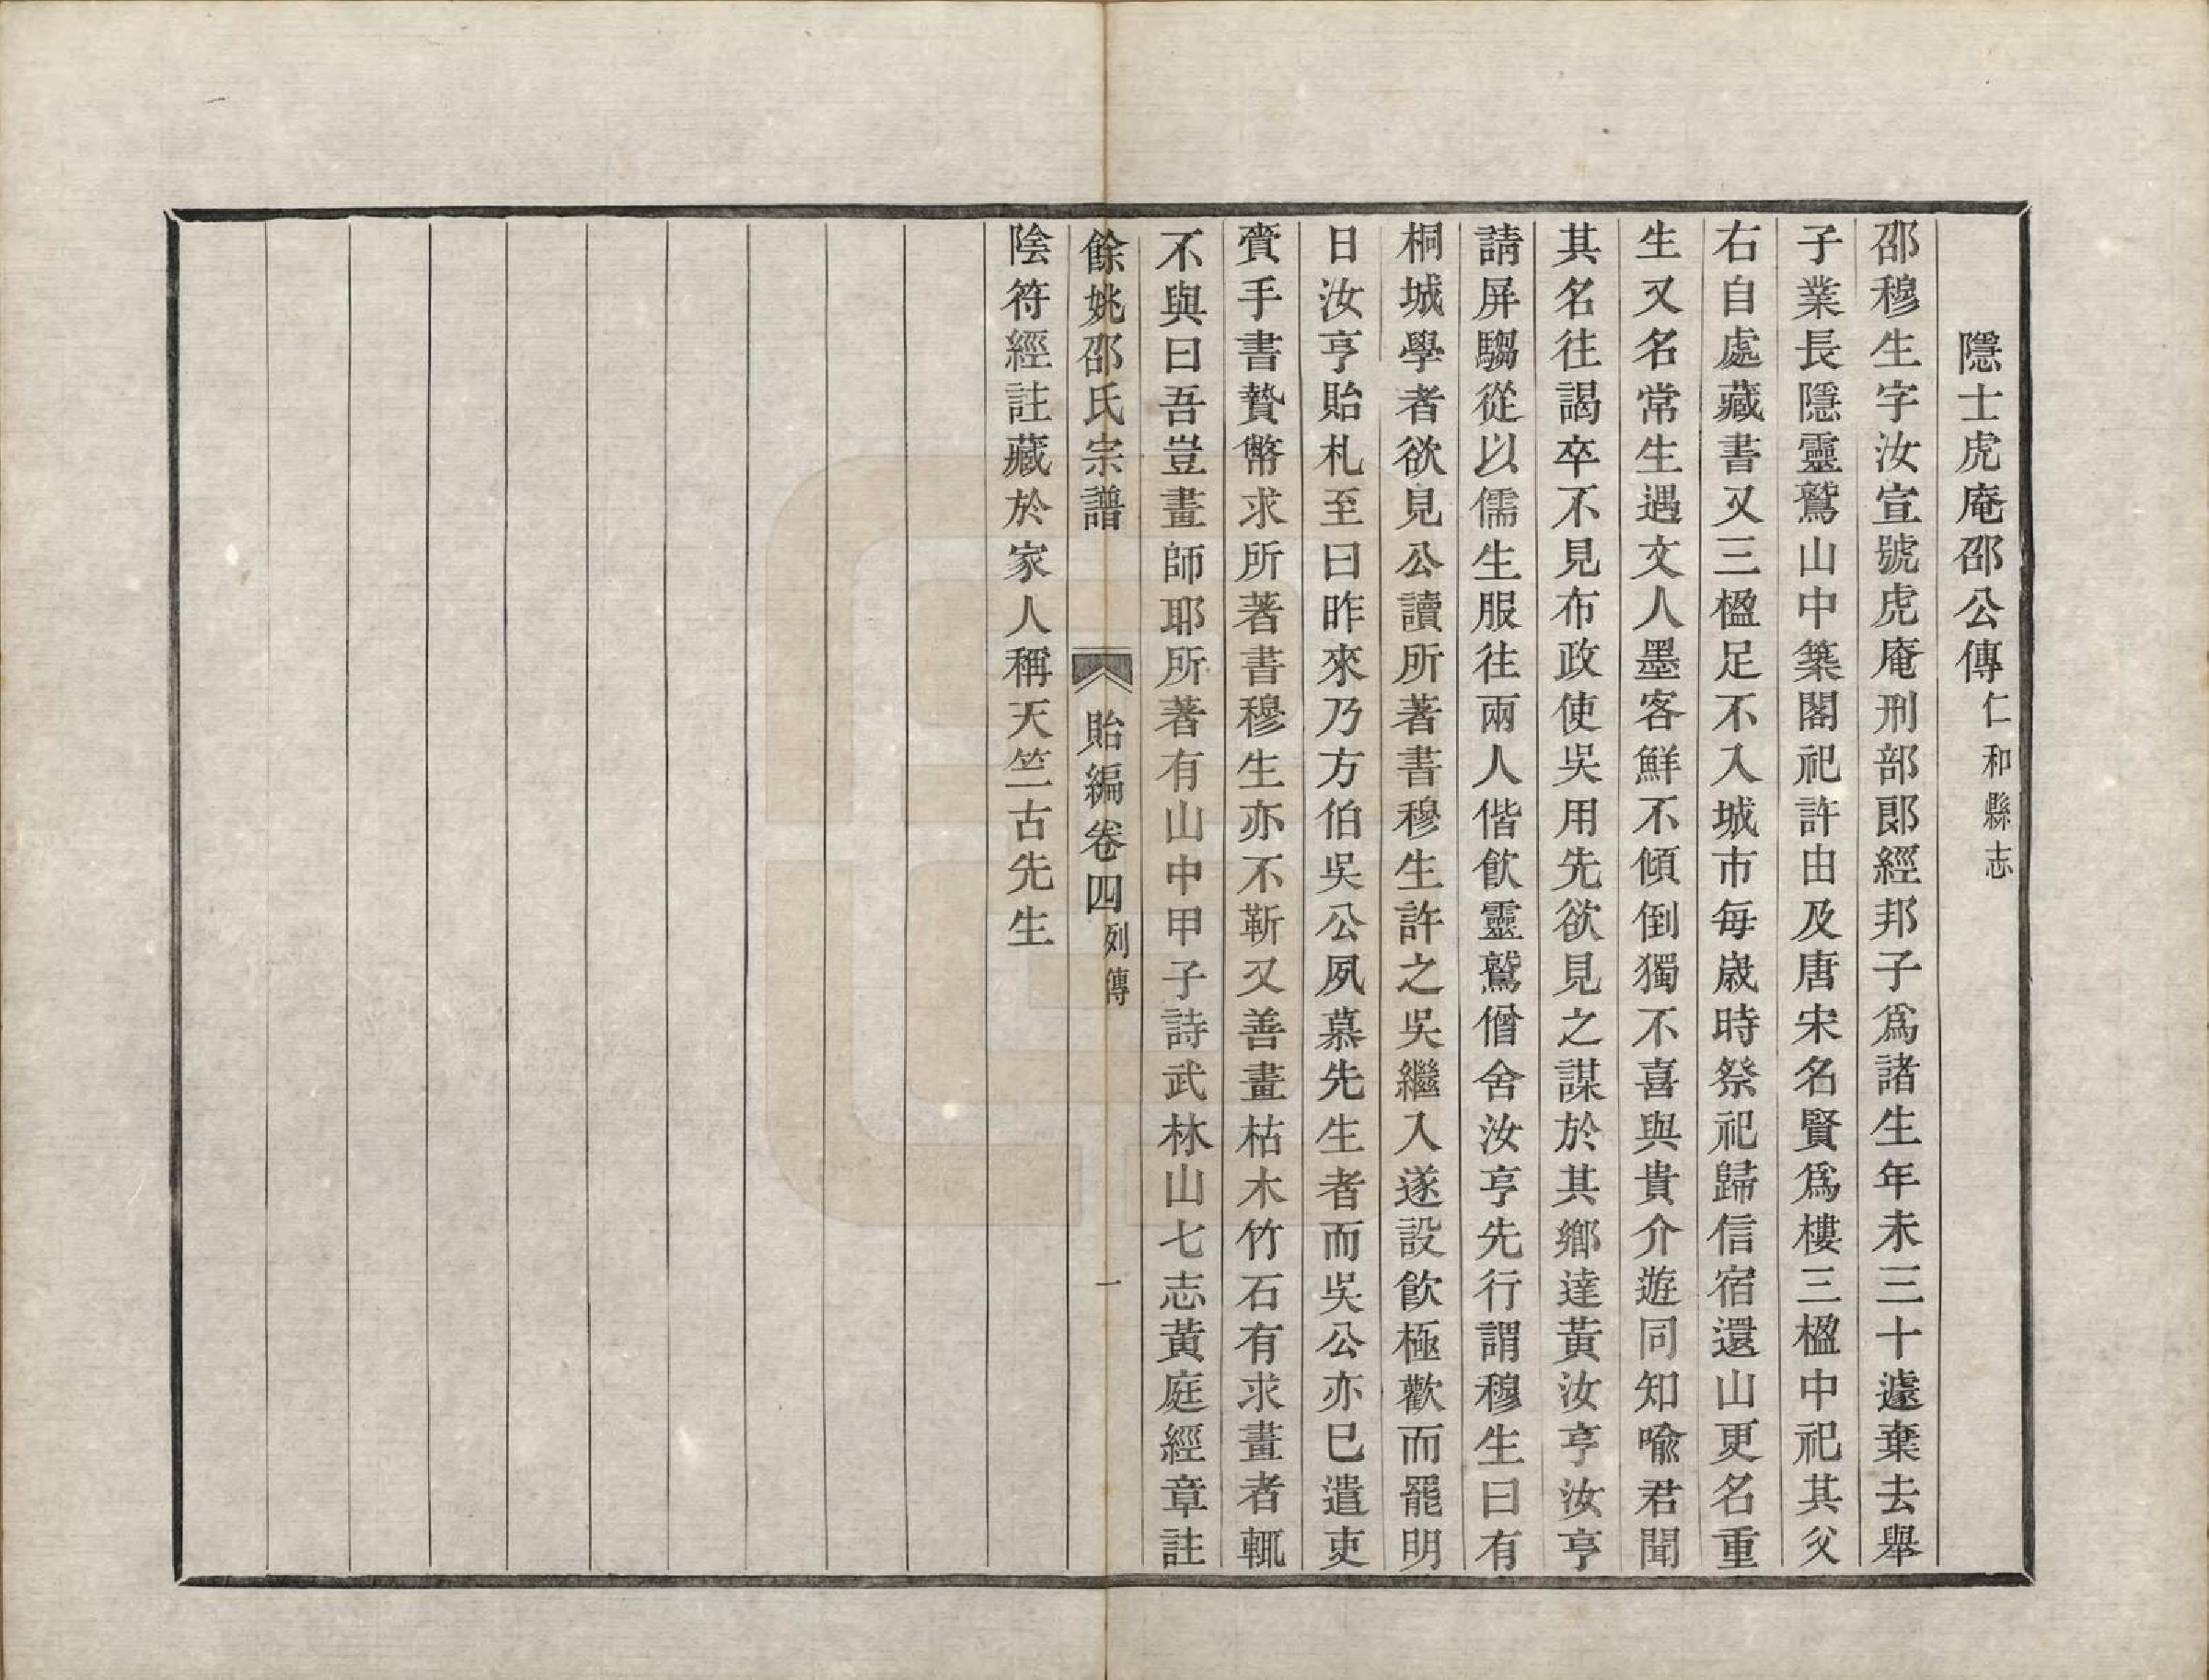 隱士虎庵邵公傳仁和縣志
邵穆生字汝宣號虎庵刑部郎經邦子爲諸生年未三十遽棄去舉
子業長隱靈鷲山中築閣祀許由及唐宋名賢爲樓三楹中祀其父
右自處藏書又三楹足不入城市每歲時祭祀歸信宿還山更名重
生又名常生遇文人墨客鮮不傾倒獨不喜與貴介遊同知喩君聞
其名往謁卒不見布政使吳用先欲見之謀於其鄉達黃汝亨汝亨
請屏騶從以儒生服往兩人偕飲靈鷲僧舍汝亨先行謂穆生曰有
桐城學者欲見公讀所著書穆生許之吳繼入遂設飲極歡而罷明
日汝亨貽札至曰昨來乃方伯吳公夙慕先生者而吳公亦巳遣吏
賫手書贄幣求所著書穆生亦不靳又善畫枯木竹石有求畫者輒
不與曰吾豈畫師耶所著有山中甲子詩武林山七志黃庭經章註
餘姚邵氏宗譜 貽編卷四列傳 一
陰符經註藏於家人稱天竺古先生